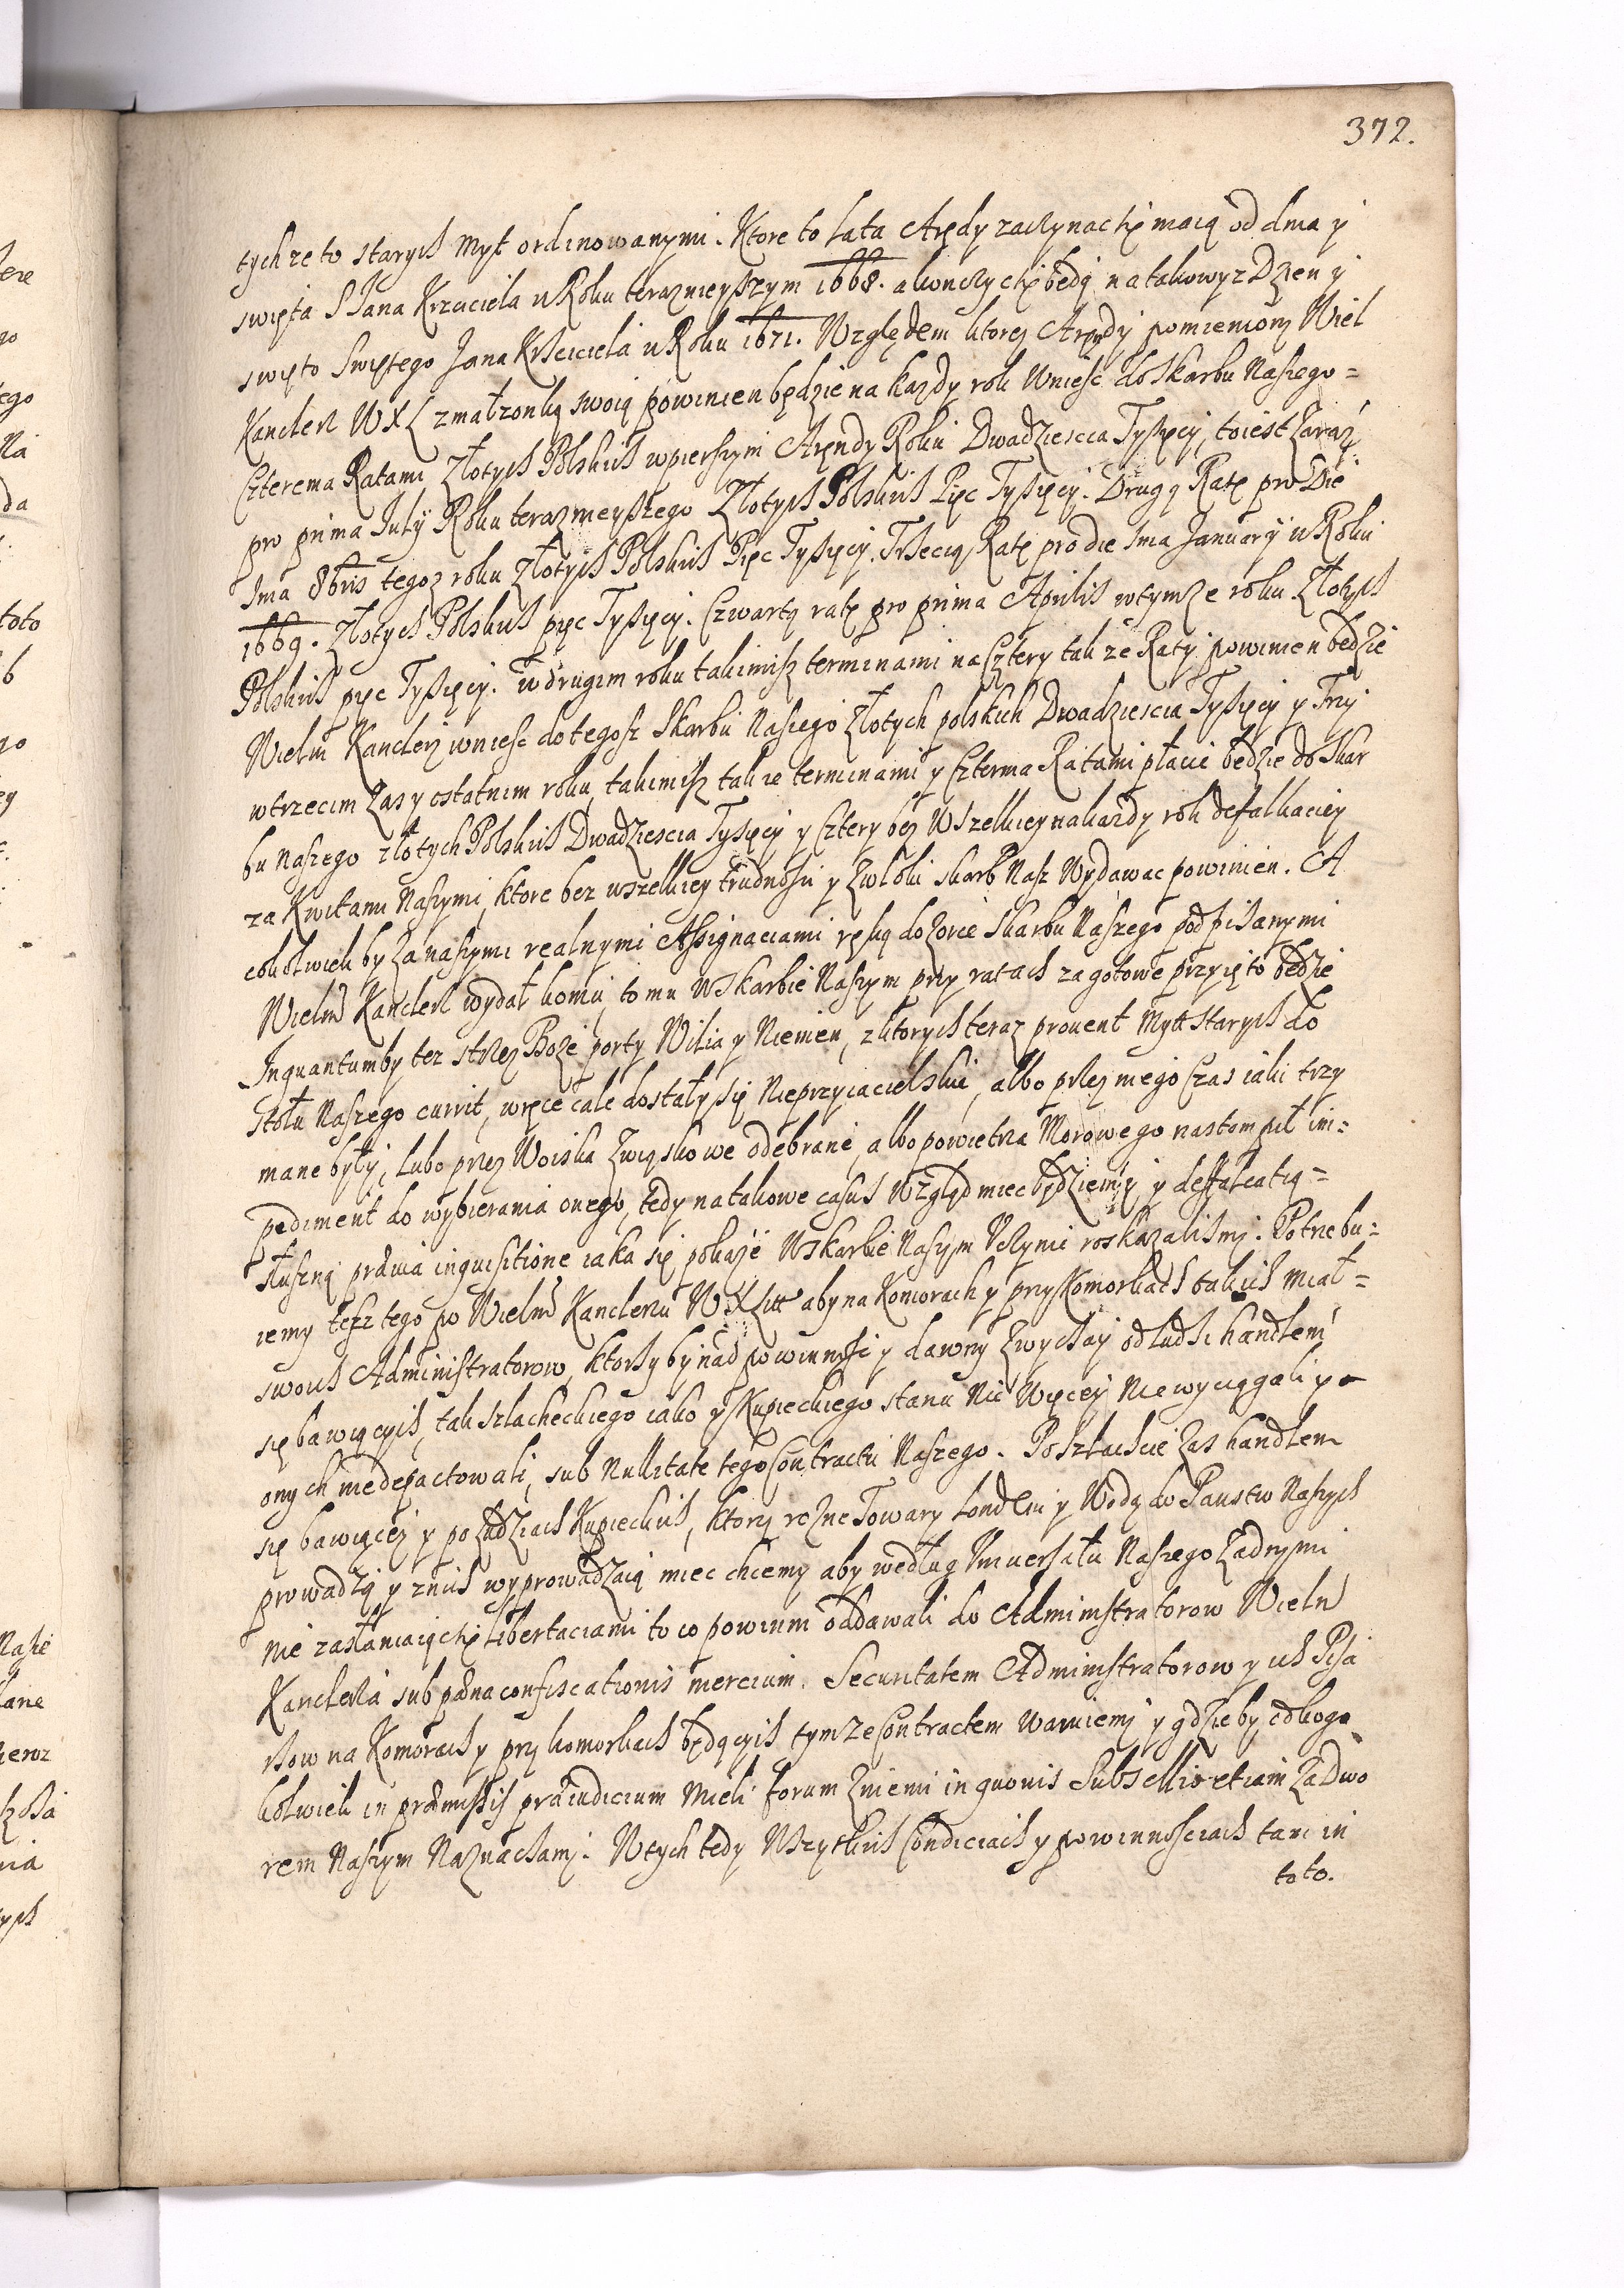 372.
tych ze to starych Myt ordinowanymi. Ktore to lata Arędy zaczynac się maią od dnia y
swięta S Iana Krzciciela w Roku terazmieyszym 1668. a konczyc się będą na takowyz Dzien y
swięto Swiętego Jana Krzciciela w Roku 1671. Względem ktorey Arędy pomieniony Wiel
Kanclerz WXL z małzonką swoią powinien będzie na kazdy rok Wnieść do Skarbu Naszego =
Czterema Ratami Złotych Polskich w pierszym Arędy Roku Dwadziescia Tysięcy, to iest zaraz
pro prima July Roku terazmieyszego Złotych Polskich Pięc Tysięcy. Drugą Ratę pro Die
1ma 8bris tegoz roku Złotych Polskich Pięc Tysięcy. Trzecią Ratę pro die 1ma January w Roku
1669. Złotych Polskich pięc Tysięcy. Czwartą ratę pro prima Aprilis w tymze roku Złotych
Polskich pięc Tysięcy. W drugim roku takimisz terminami na Cztery takze Raty powinien będzie
Wielm Kanclerz wniesc do tegosz Skarbu Naszego złotych polskich Dwadziescia Tysięcy y Trzy
w trzecim zas y ostatnim roku, takimisz takze terminami y Czterma Ratami płacic będzie do Skar
bu Naszego złotych Polskich Dwadziescia Tysięcy y Cztery bez Wszelkiey na kazdy rok defalkaciey
za Kwitami Naszymi, ktore bez wszelkiey trudnosci y zwłoki skarb Nasz Wydawac powinien. A
cokolwiek by za naszymi realnymi Assignaciami ręką do zorce Skarbu Naszego podpisanymi
Wielm Kanclerz wydał komu, to mu W Skarbie Naszym przy ratach za gotowe przyięto będzie
Inquantum by tez strzez Boze porty Wilia y Niemen, z ktorych teraz prouent Mytt starych do
stołu Naszego currit, w ręce cale dostały się Nieprzyiacielskie, albo przez niego czas iaki trzy
mane były, lubo przez Woiska związkowe odebrane, albo powietrza Morowego nastompił im=
pediment do wybierania onego, tedy na takowe casus Wzgląd miec będziemy y deffalcatią =
słuszną prævia inquisitione iaka się pokaze W Skarbie Naszym Uczynic roskazalismy. Potrzebu=
iemy tesz tego po Wielm Kanclerzu WXLitt aby na Komorach y przykomorkach takich miał =
swoich Administratorow, ktorzy by nad powinnosc y dawny zwyczay od ludzi handlem
się bawiących, tak szlacheckiego iako y Kupieckiego stanu Nic Więcey Nie wyciągali y
onych nie depactowali, sub Nullitate tego Contractu Naszego. Po szlachcie zas handlem
się bawiącey y po ludziach Kupieckich, ktorzy rozne Towary londem y Wodą do Panstw Naszych
prowadzą y z nich wyprowadzaią miec chcemy aby według Vniuersału Naszego zadnymi
nie zasłaniaiąc się Libertaciami to co powinni oddawali do Administratorow Wielm
Kanclerza sub pæna confiscationis mercium. Securitatem Administratorow y ich Pisa
rzow na Komorach y przykomorkach będących tymze Contractem Waruiemy y gdzie by od kogo
kolwiek in præmissis præiudicium Mieli forum z niemi in quouis Subsellio etiam za Dwo
rem Naszym Naznaczamy. W tych tedy Wszytkich Condiciach y powinnosciach tam in
toto.